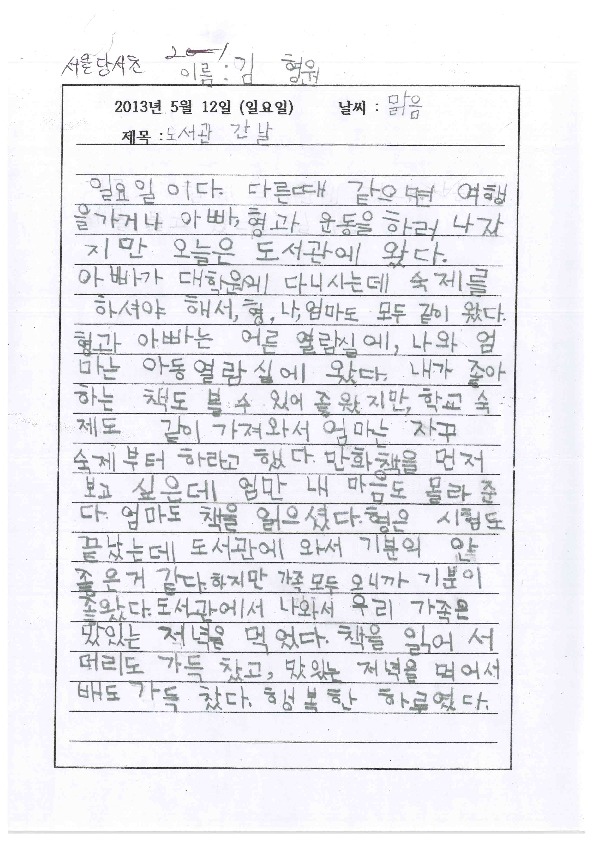 서울당서초 2-1
이름 : 김 형원
2013년 5월 12일 (일요일) 날씨 : 맑음
제목 : 도서관 간 날
일요일이다. 다른때 같으면 여행
을가거나 아빠, 형과 운동을 하러 나가
지만 오늘은 도서관에 왔다.
아빠가 대학원에 다니시는데 숙제를
하셔야 해서, 형, 나, 엄마도 모두 같이 왔다.
형과 아빠는 어른 열람실에, 나와 엄
마는 아동열람실에 왔다. 내가 좋아
하는 책도 볼 수 있어 좋왔지만, 학교 숙
제도 같이 가져와서 엄마는 자꾸
숙제부터 하라고 했다. 만화책을 먼저
보고 싶은데 엄만 내 마음도 몰라 준
다. 엄마도 책을 읽으셨다. 형은 시험도
끝났는데 도서관에 와서 기분이 안
좋은거 같다. 하지만 가족 모두 오니까 기분이
좋왔다. 도서관에서 나와서 우리 가족은
맜있는 저녁을 먹었다. 책을 읽어서
머리도 가득 찼고, 맜있는 저녁을 먹어서
배도 가득 찼다. 행복한 하루였다.